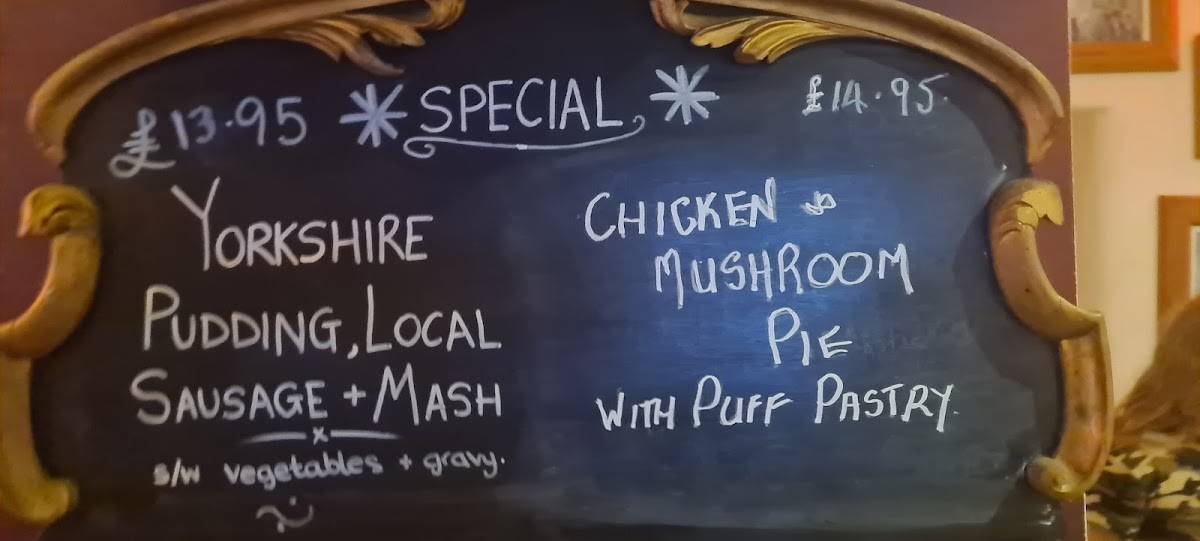 £13.95 * SPECIAL * £14.95
YORKSHIRE
PUDDING, LOCAL
SAUSAGE + MASH
s/w vegetables + gravy.
CHICKEN &
MUSHROOM
PIE
WITH PUFF PASTRY.